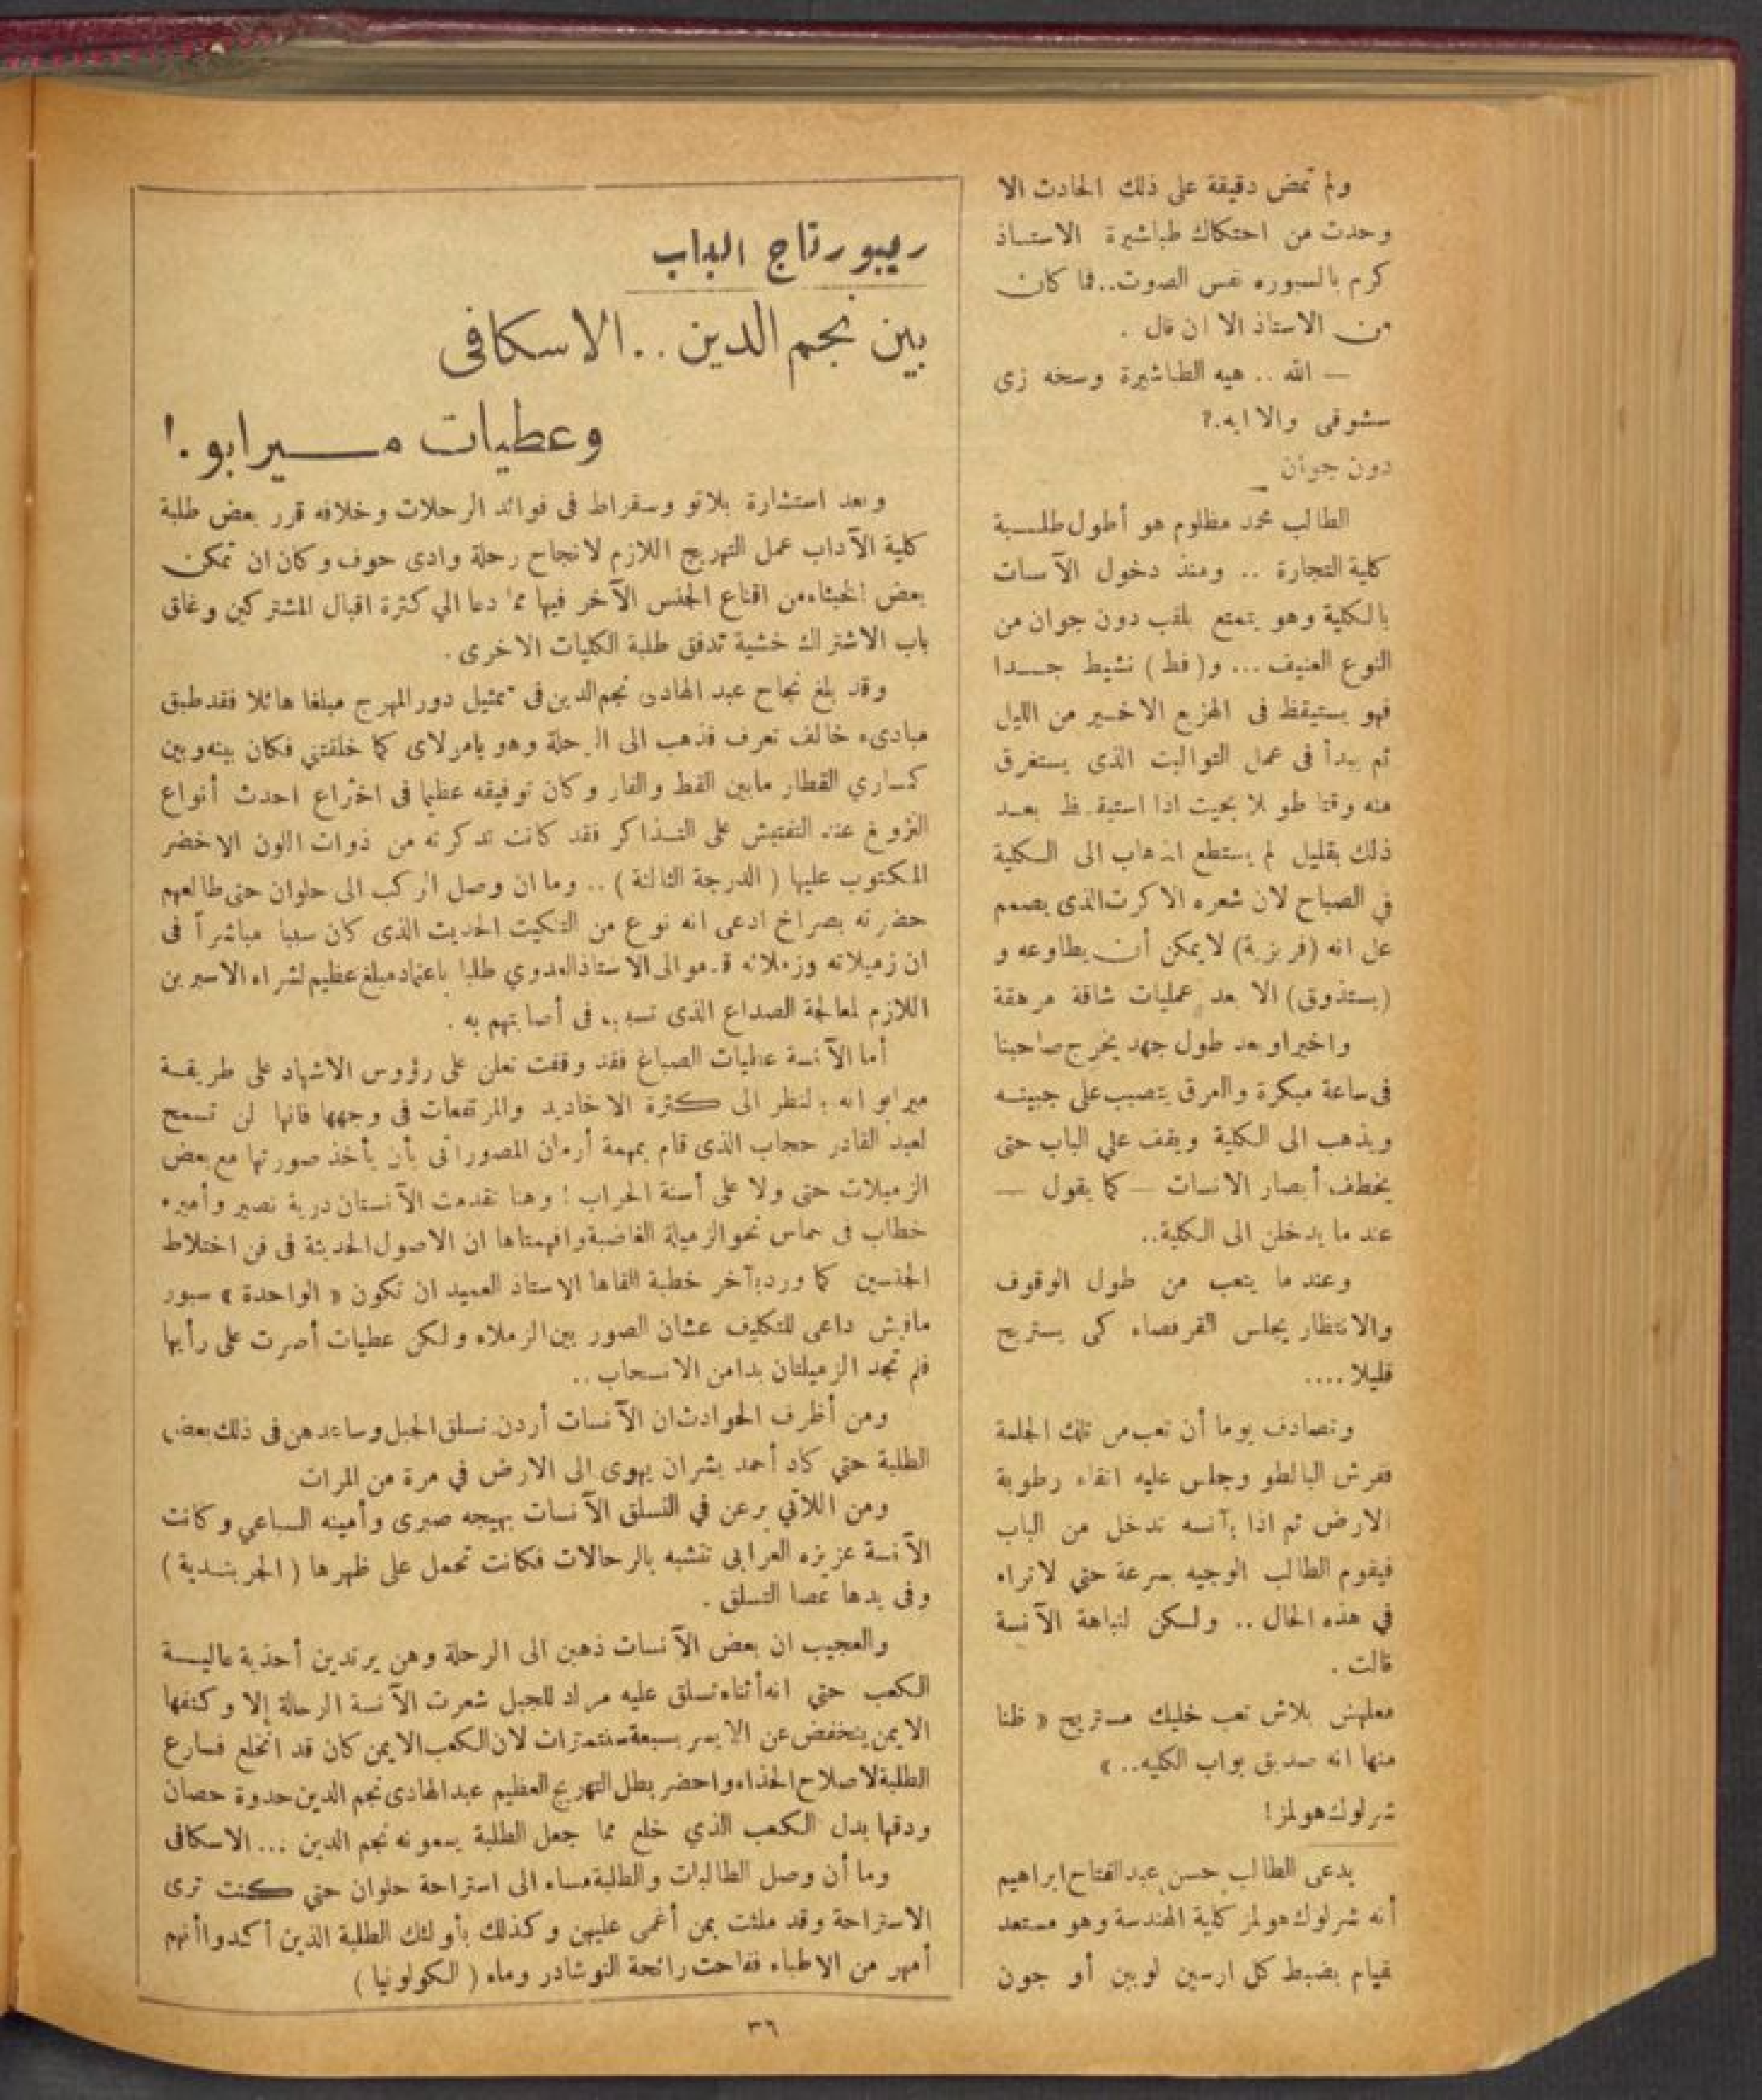 ولم تمض دقيقة على ذلك الحادث الا
وحدث من احتكاك طباشيرة الاستاذ
كرم بالسبوره نفس الصوت.. فما كان
من الاستاذ الا ان قال .
— الله .. هيه الطباشيرة وسخه زى
سشوقى والا ايه.؟
دون جوان
الطالب محمد مظلوم هو أطول طلبة
كلية التجارة .. ومنذ دخول الآنسات
بالكلية وهو يتمتع بلقب دون جوان من
النوع العنيف ... و( فط ) نشيط جدا
فهو يستيقظ فى الهزيع الاخير من الليل
ثم يبدأ فى عمل التواليت الذى يستغرق
منه وقتا طويلا بحيث اذا استيقظ بعد
ذلك بقليل لم يستطع الذهاب الى الكلية
في الصباح لان شعره الاكرت الذى يصمم
على انه (فريزية) لا يمكن أن يطاوعه و
(يستذوق) الا بعد عمليات شاقة مرهقة
واخيرا وبعد طول جهد يخرج صاحبنا
فى ساعة مبكرة والعرق يتصبب على جبينه
ويذهب الى الكلية ويقف علي الباب حتى
يخطف أبصار الانسات — كما يقول —
عند ما يدخلن الى الكلية..
وعند ما يتعب من طول الوقوف
والانتظار يجلس القرفصاء كى يستريح
قليلا ....
وتصادف يوما أن تعب من تلك الجلسة
ففرش البالطو وجلس عليه اتقاء رطوبة
الارض ثم اذا بآنسه تدخل من الباب
فيقوم الطالب الوجيه بسرعة حتي لا تراه
في هذه الحال .. ولكن لنباهة الآنسة
قالت .
معلهش بلاش تعب خليك مستريح « ظنا
منها انه صديق بواب الكليه.. »
شرلوك هولمز !
يدعى الطالب حسن عبد الفتاح ابراهيم
أنه شرلوك هولمز كلية الهندسة وهو مستعد
لقيام بضبط كل ارسين لوبين أو جون
ريبورتاج الباب
بين نجم الدين .. الاسكافى
وعطيات ميرابو .!
وبعد استشارة بلاتو وسقراط فى فوائد الرحلات وخلافه قرر بعض طلبة
كلية الآداب عمل التهريج اللازم لانجاح رحلة وادى حوف وكان ان تمكن
بعض الخبثاء من اقناع الجنس الآخر فيها مما دعا الي كثرة اقبال المشتركين وغلق
باب الاشتراك خشية تدفق طلبة الكليات الاخرى .
وقد بلغ نجاح عبد الهادى نجم الدين فى تمثيل دور المهرج مبلغا هائلا فقد طبق
مبادىء خالف تعرف فذهب الى الرحلة وهو يامولاى كما خلقتني فكان بينه وبين
كمساري القطار مابين القط والفار وكان توفيقه عظيما فى اختراع احدث أنواع
الزوغ عند التفتيش على التذاكر فقد كانت تذكرته من ذوات اللون الاخضر
المكتوب عليها ( الدرجة الثالثة ) .. وما ان وصل الركب الى حلوان حتى طالعهم
حضرته بصراخ ادعى انه نوع من التنكيت الحديث الذى كان سببا مباشرآ فى
ان زميلاته وزملائه قدموا الى الاستاذ العدوي طلبا باعتماد مبلغ عظيم لشراء الاسبرين
اللازم لمعالجة الصداع الذى تسبب فى أصابتهم به .
أما الآنسة عطيات الصباغ فقد وقفت تعلن على رؤوس الاشهاد على طريقة
ميرابو انه بالنظر الى كثرة الاخاديد والمرتفعات فى وجهها فانها لن تسمح
لعبد القادر حجاب الذى قام بمهمة أرمان المصوراتى بأن يأخذ صورتها مع بعض
الزميلات حتى ولا على أسنة الحراب ! وهنا تقدمت الآنستان درية نصير وأميره
خطاب فى حماس نحو الزميلة الغاضبة وافهمتاها ان الاصول الحديثة فى فن اختلاط
الجنسين كما ورد بآخر خطبة القاها الاستاذ العميد ان تكون « الواحدة » سبور
مافيش داعى للتكليف عشان الصور بين الزملاء ولكن عطيات أصرت على رأيها
فلم تجد الزميلتان بدا من الانسحاب ..
ومن أظرف الحوادث ان الآنسات أردن تسلق الجبل وساعدهن فى ذلك بعض
الطلبة حتي كاد أحمد بشران يهوى الى الارض في مرة من المرات
ومن اللاتي برعن في التسلق الآنسات بهيجه صبرى وأمينه الساعي وكانت
الآنسة عزيزه العرابى تتشبه بالرحالات فكانت تحمل على ظهرها ( الجربندية )
وفى يدها عصا التسلق .
والعجيب ان بعض الآنسات ذهبن الى الرحلة وهن يرتدين أحذية عالية
الكعب حتي انه أثناء تسلق عليه مراد للجبل شعرت الآنسة الرحالة إلا وكتفها
الايمن ينخفض عن الايسر بسبعة سنتمترات لان الكعب الايمن كان قد انخلع فسارع
الطلبة لاصلاح الحذاء واحضر بطل التهريج العظيم عبد الهادى نجم الدين حدوة حصان
ودقها بدل الكعب الذي خلع مما جعل الطلبة يسمونه نجم الدين ... الاسكافى
وما أن وصل الطالبات والطلبة مساء الى استراحة حلوان حتي كنت ترى
الاستراحة وقد ملئت بمن أغمى عليهن وكذلك بأولئك الطلبة الذين أكدوا أنهم
أمهر من الاطباء ففاحت رائحة النوشادر وماء ( الكولونيا )
٣٦